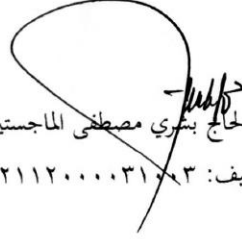 الحاج بشري مصطفى الماجستير
يف: ٢١١٢٠٠٠٠٣١٠٠٣